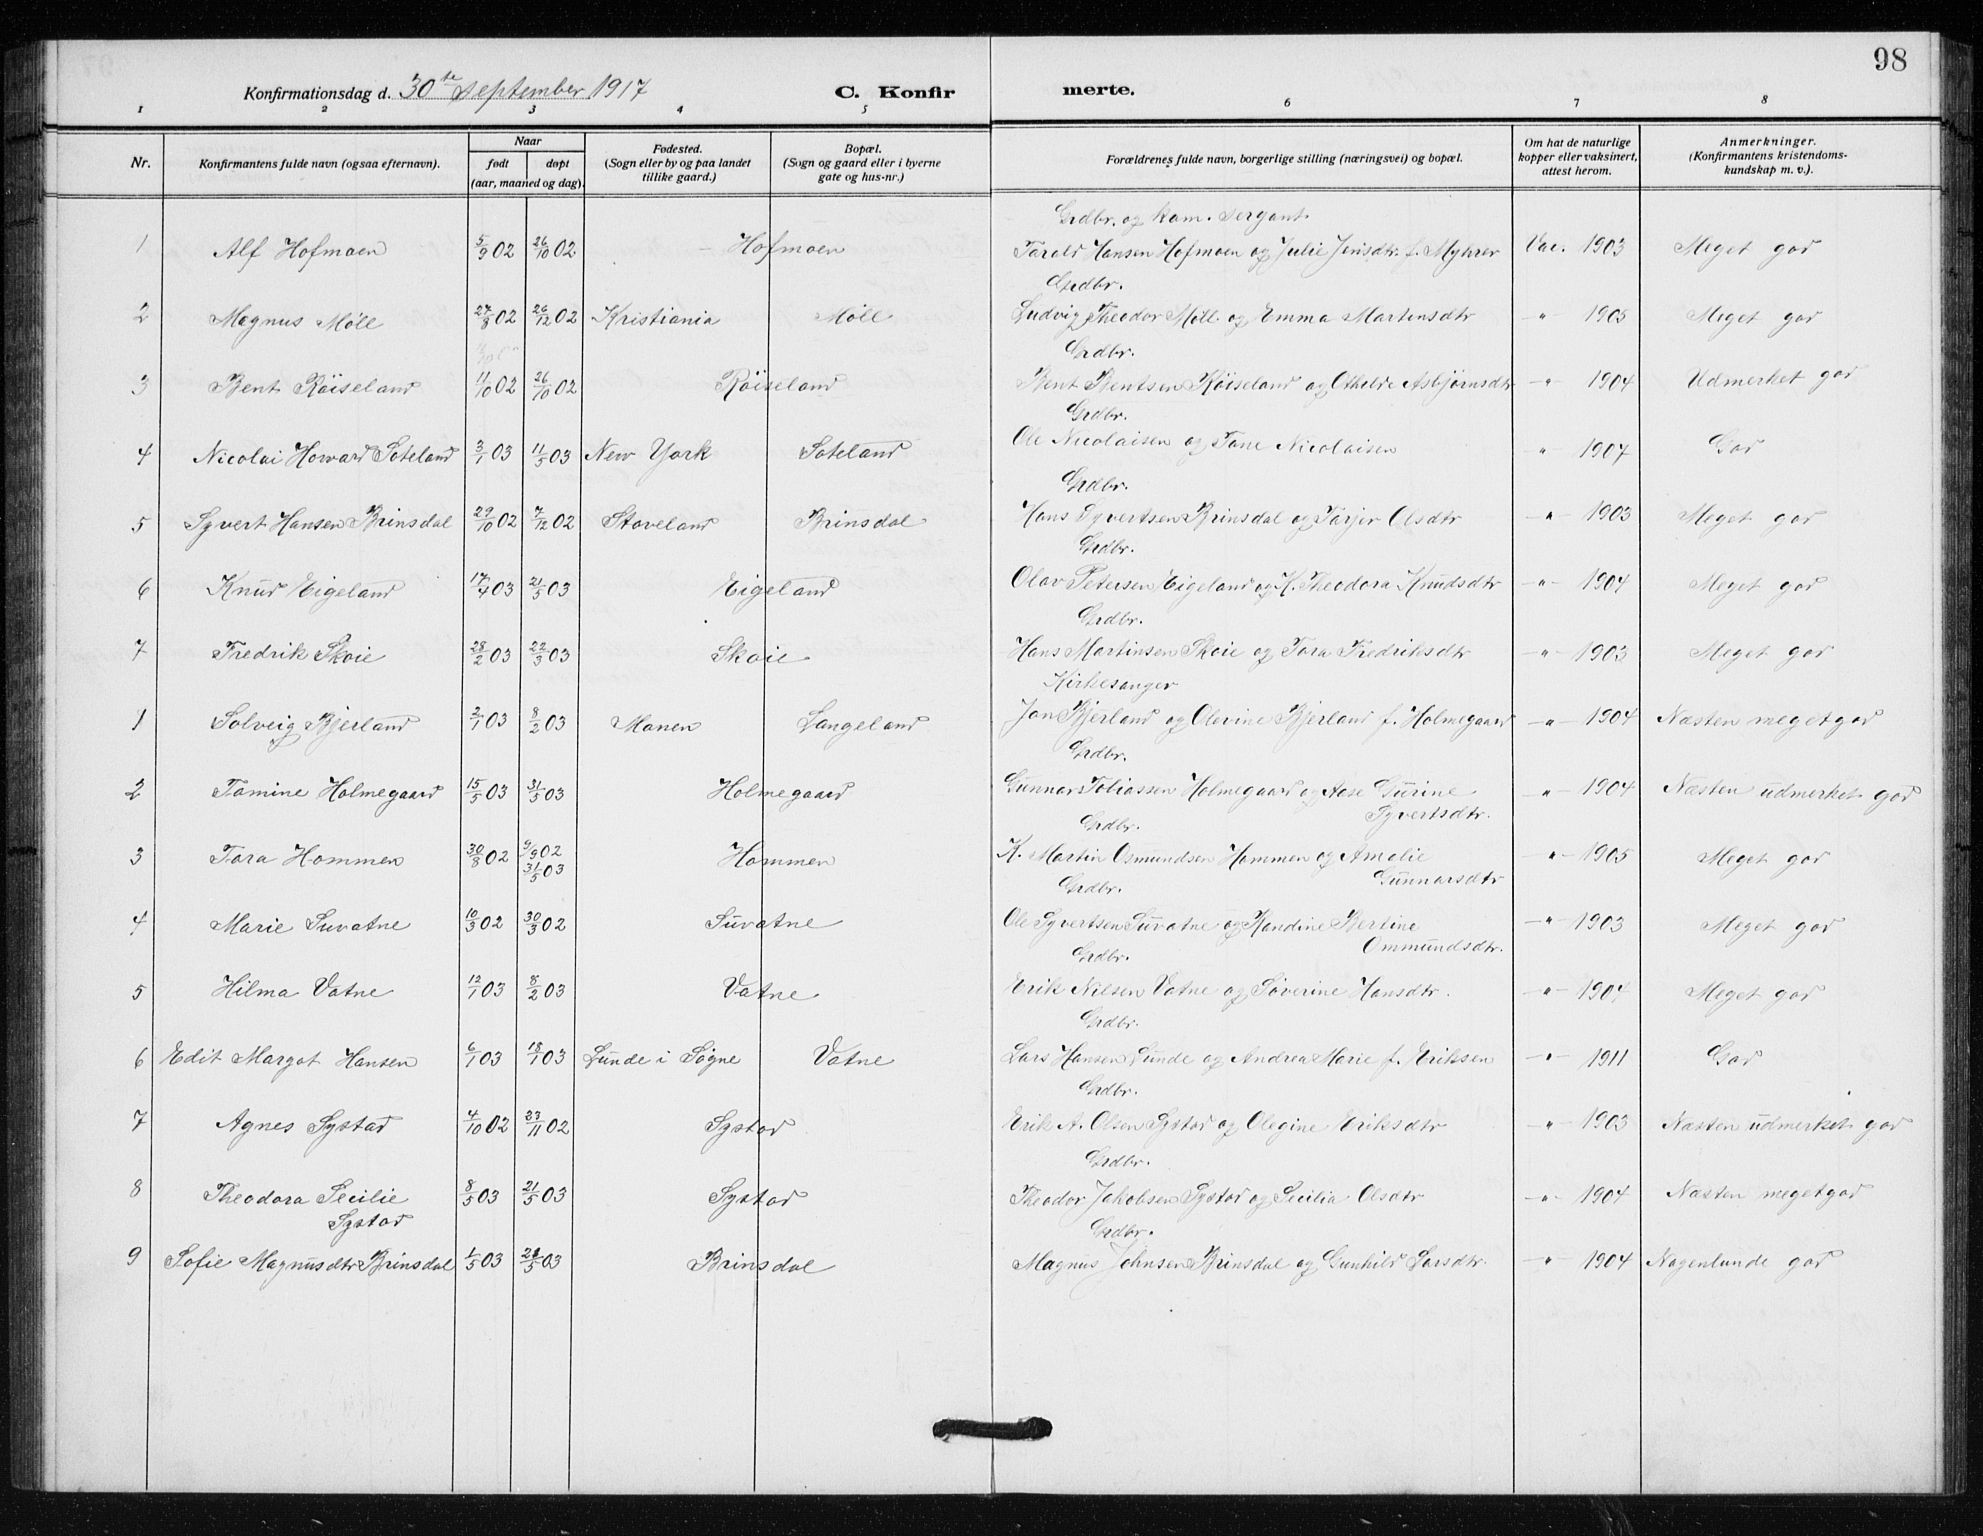 98
Konfirmationsdag d. 30te september 1917 C. Konfir merte.
1 2 3 4 5 6 7 8
Nr. Konfirmantens fulde navn (ogsaa efternavn). Naar født døpt (aar, maaned og dag). Fødested. (Sogn eller by og paa landet tillike gaard.) Bopæl. (Sogn og gaard eller i byerne gate og hus-nr.) Forældrenes fulde navn, borgerlige stilling (næringsvei) og bopæl. Om hat de naturlige kopper eller vaksinert, attest herom. Anmerkninger. (Konfirmantens kristendoms-kundskap m. v.).
Grdbr. og kom. sergant.
1 Alf Hofmoen 5/9 02 26/10 02 Hofmoen Tarald Hansen Hofmoen og Julie Jensdtr. f. Myhrer Vac. 1903 Meget god
Grdbr.
2 Magnus Møll 27/8 02 26/12 02 Kristiania Møll Ludvig Theodor Møll og Emma Martensdtr -"- 1905 Meget god
Grdbr.
3 Bent Røiseland 11/10 02 26/10 02 Røiseland Bent Bentsen Røiseland og Othilde Asbjørnsdtr -"- 1904 Udmerket god
Grdbr.
4 Nicolai Howard Soteland 3/1 03 11/5 03 New York Soteland Ole Nicolaisen og Tone Nicolaisen " 1907 God
Grdbr.
5 Syvert Hansen Brinsdal 29/10 02 7/12 02 Stoveland Brinsdal Hans Syvertsen Brinsdal og Tarjer Olsdtr -"- 1903 Meget god
Grdbr.
6 Knud Eigeland 17/4 03 21/5 03 Eigeland Olav Petersen Eigeland og K. Theodora Knudsdtr -"- 1904 Meget god
Grdbr.
7 Fredrik Skoie 28/2 03 22/3 03 Skoie Hans Martinsen Skoie og Tora Fredriksdtr -"- 1903 Meget god
Kirkesanger
1 Solveig Bjerland 2/1 03 8/2 03 Monen Langeland Jon Bjerland og Olevine Bjerland f. Holmegaard -"- 1904 Næsten meget god
Grdbr.
2 Tomine Holmegaard 15/5 03 31/5 03 Holmegaard Gunnar Tobiassen Holmegaard og Aase Gurine Syvertsdtr. -"- 1904 Næsten udmerket god
Grdbr.
3 Tora Hommen 30/8 02 9/9 02 31/5 03 Hommen K. Martin Osmundsen Hommen og Amalie Gunnarsdtr "- 1905 Meget god
Grdbr.
4 Marie Suvatne 10/3 02 30/3 02 Suvatne Ole Syvertsen Suvatne og Randine Bertine Ommundsdtr. -"- 1903 Meget god
Grdbr.
5 Hilma Vatne 12/1 03 8/2 03 Vatne Erik Nilsen Vatne og Søverine Hansdtr. -"- 1904 Meget god
Grdbr.
6 Edit Margot Hansen 6/1 03 18/1 03 Lunde i Søgne Vatne Lars Hansen Lunde og Andrea Marie f. Eriksen -"- 1911 God
Grdbr.
7 Agnes Systad 4/10 02 23/11 02 Systad Erik A. Olsen Systad og Olegine Eriksdtr -"- 1903 Næsten udmerket god
Grdbr.
8 Theodora Secilie Systad 8/5 03 21/5 03 Systad Theodor Jakobsen Systad og Secilia Olsdtr -"- 1904 Næsten meget god
Grdbr.
9 Sofie Magnusdtr Brinsdal 1/5 03 21/5 03 Brinsdal Magnus Johnsen Brinsdal og Gunhild Larsdtr. -"- 1904 Nogenlunde god